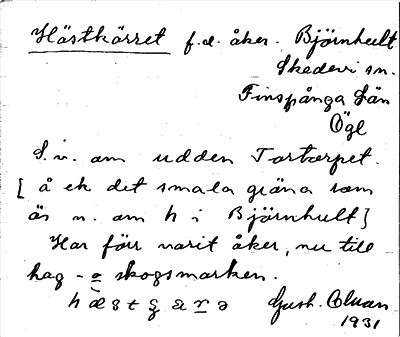 Hästkärret f.d. åker. Björnhult
Skedevi sn.
Finspånga Län
Ögl
S.v. om udden Tortorpet.
[å ek det smala gräna som
är n. om h i Björnhult]
Har förr varit åker, nu till
hag- o skogsmarken.
Gust.
1931